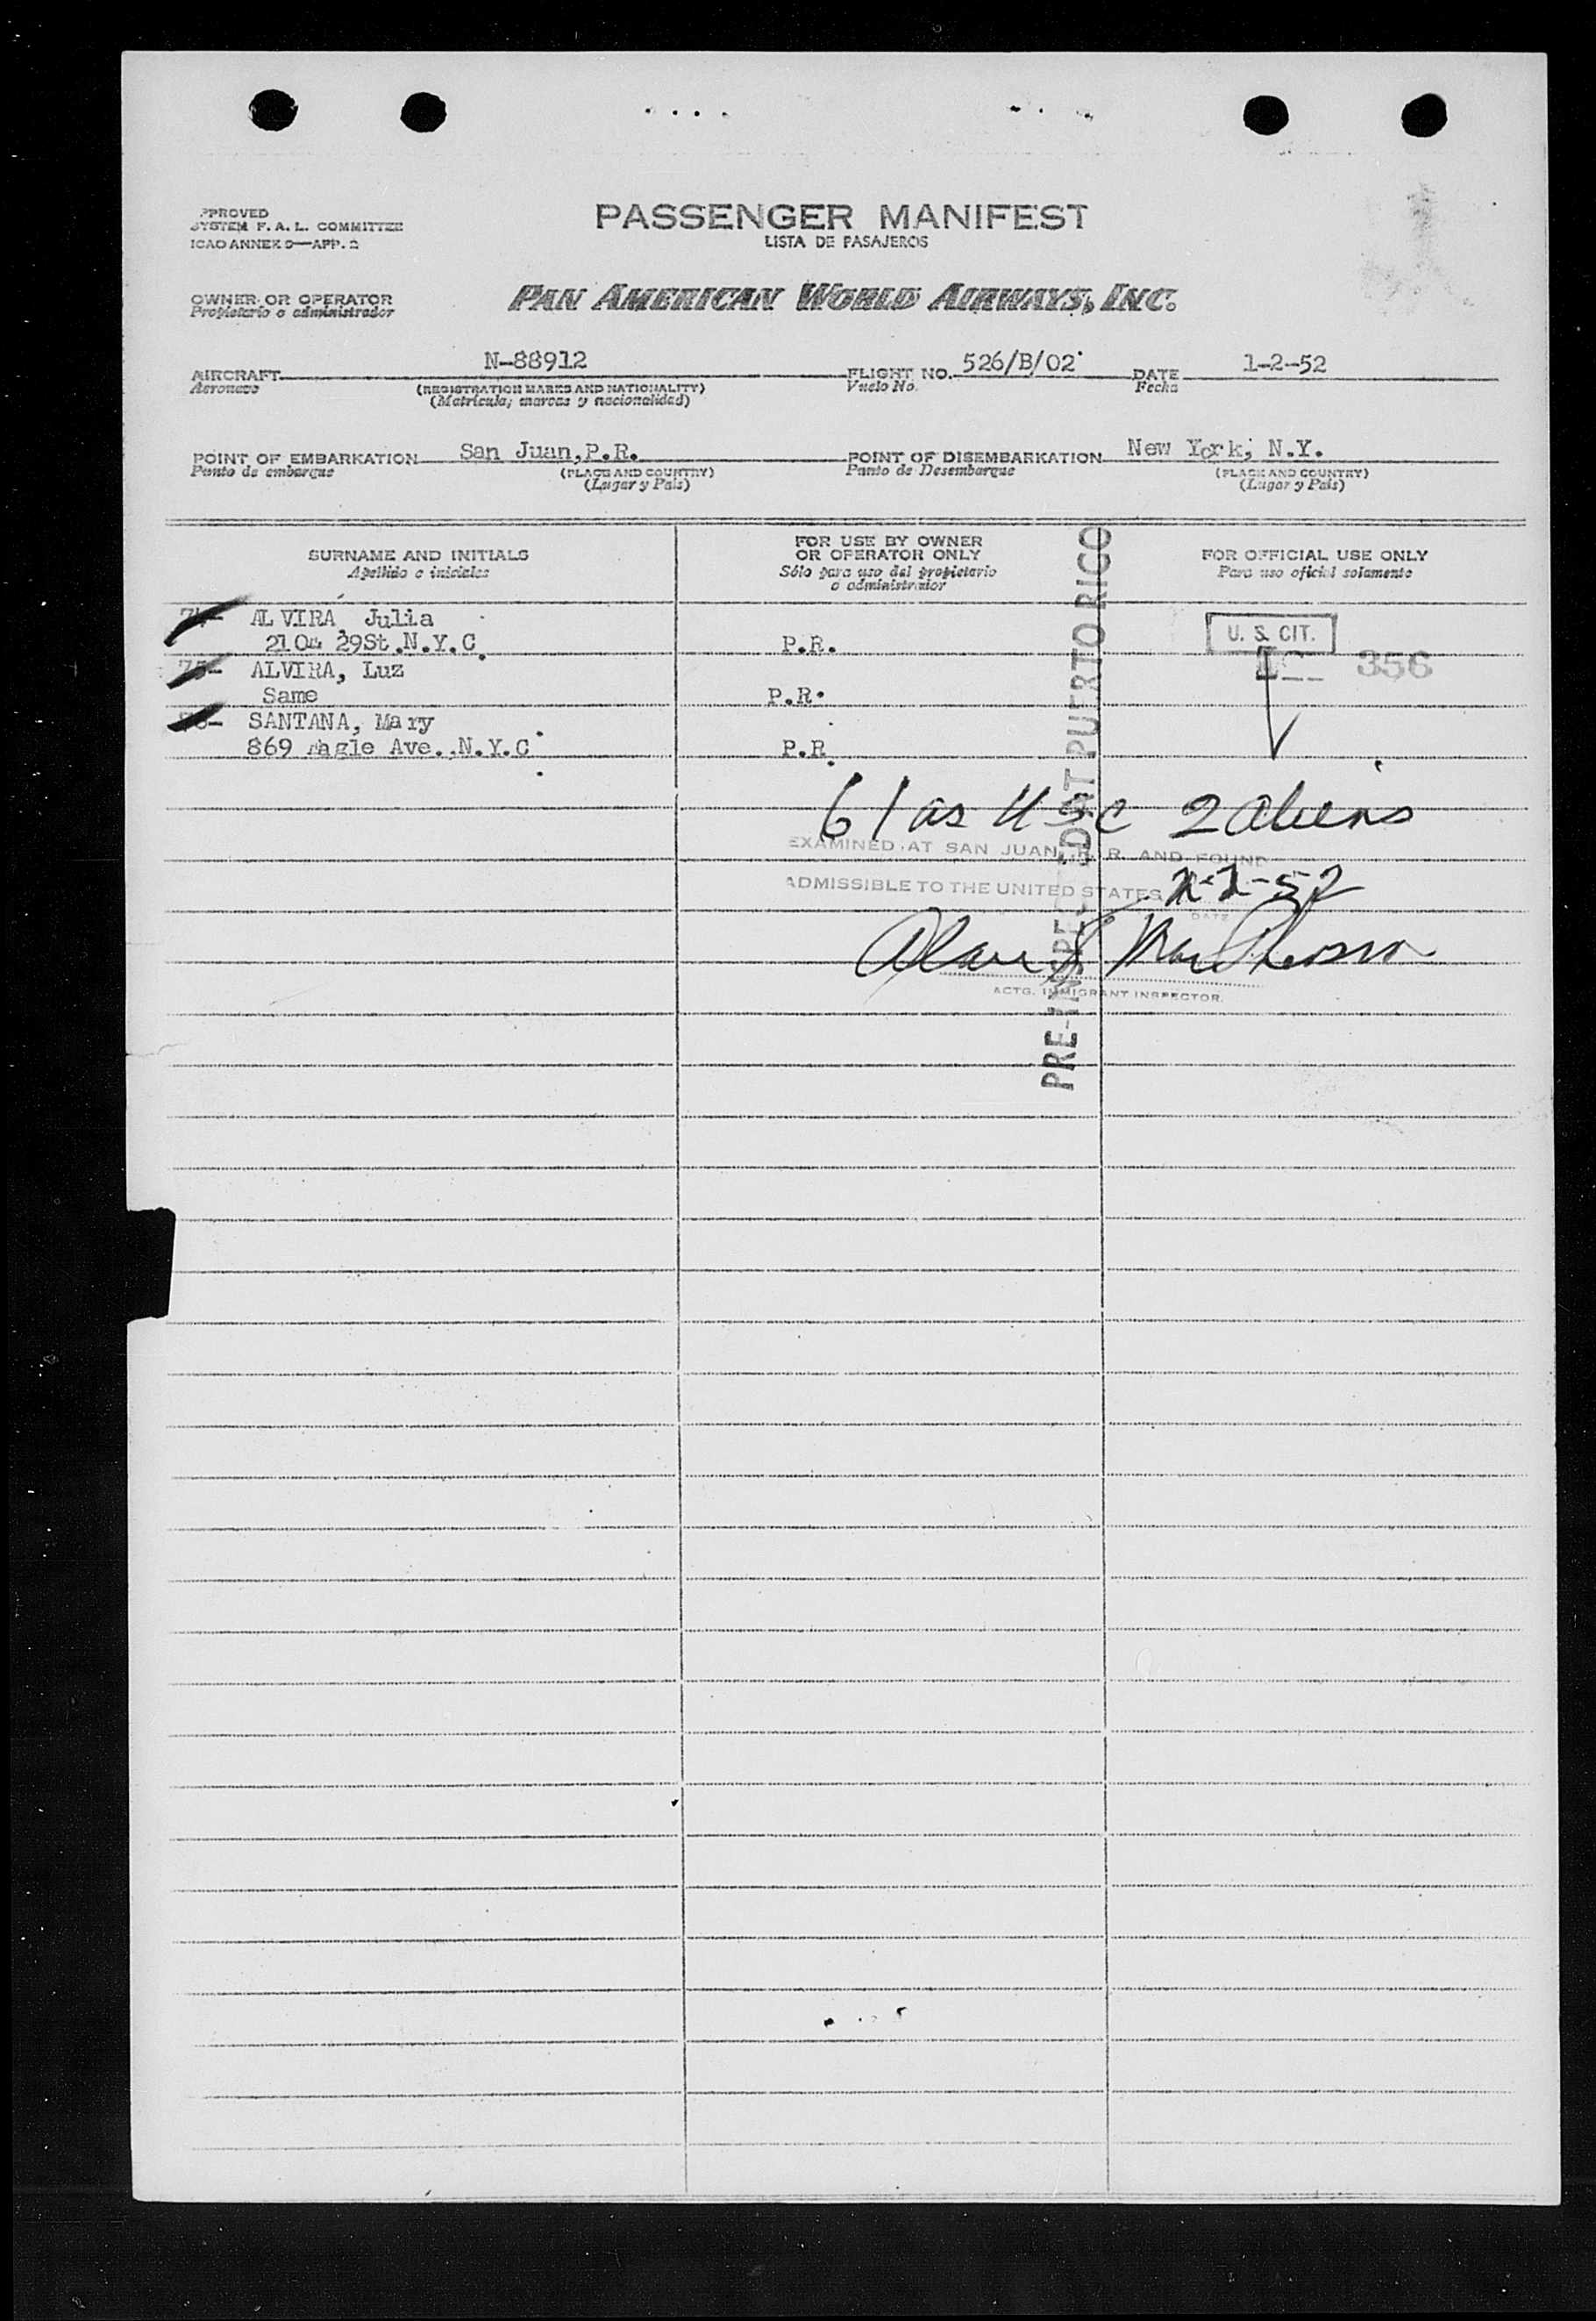 PPROVED
SYSTEM F. A. L. COMMITTEE
ICAO ANNEX 9—APP. 2
PASSENGER MANIFEST
LISTA DE PASAJEROS
OWNER OR OPERATOR
Propietario o administrador
PAN AMERICAN WORLD AIRWAYS, INC.
AIRCRAFT N-88912 FLIGHT NO. 526/B/02 DATE 1-2-52
Aeronave (REGISTRATION MARKS AND NATIONALITY) Vuelo No. Fecha
(Matricula; marcas y nacionalidad)
POINT OF EMBARKATION San Juan,P.R. POINT OF DISEMBARKATION New York, N.Y.
Punto de embarque (PLACE AND COUNTRY) Punto de Desembarque (PLACE AND COUNTRY)
(Lugar y País) (Lugar y País)
SURNAME AND INITIALS
Apellido e iniciales
FOR USE BY OWNER
OR OPERATOR ONLY
Sólo para uso del propietario
o administrador
FOR OFFICIAL USE ONLY
Para uso oficial solamente
ALVIRA, Julia
29St.N.Y.C. P.R. U. S. CIT.
75- ALVIRA, Luz 356
Same P.R.
SANTANA, Mary
869 Eagle Ave. N.Y.C. P.R.
61 as USC 2 aliens
EXAMINED AT SAN JUAN, P. R. AND FOUND
ADMISSIBLE TO THE UNITED STATES
DATE
ACTG. IMMIGRANT INSPECTOR.
PRE-INSPECTED AT PUERTO RICO